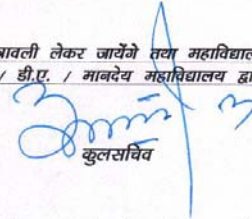 त्रावली लेकर जायेंगे तथा महाविद्याल
/ डी.ए. / मानदेय महाविद्यालय द्व
कुलसचिव